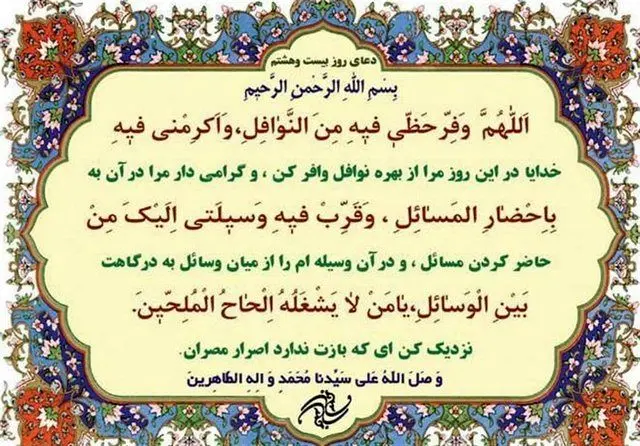 دعای روز بیست وهشتم
بِسْمِ اللهِ الرَّحْمنِ الرَّحیمِ
اَللّهُمَّ وَفِّرْ حَظّی فیهِ مِنَ النَّوافِلِ،وَاَکرِمْنی فیهِ
خدایا در این روز مرا از بهره نوافل وافر کن ، و گرامی دار مرا درآن به
بِاِحْضارِ المَسائِلِ ، وَقَرِّبْ فیهِ وَسیلَتی اِلَیْکَ مِنْ
حاضر کردن مسائل ، و درآن وسیله ام را از میان وسائل به درگاهت
بَیْنِ الْوَسائِلِ،یامَنْ لا یَشْغَلُهُ اِلْحاحُ الْمُلِحّینَ.
نزدیک کن ای که بازت ندارد اصرار مصران.
وَ صَلَ اللهُ عَلی سَیِّدِنا مُحَمَدٍ وَ الِهِ الطاهِرینَ